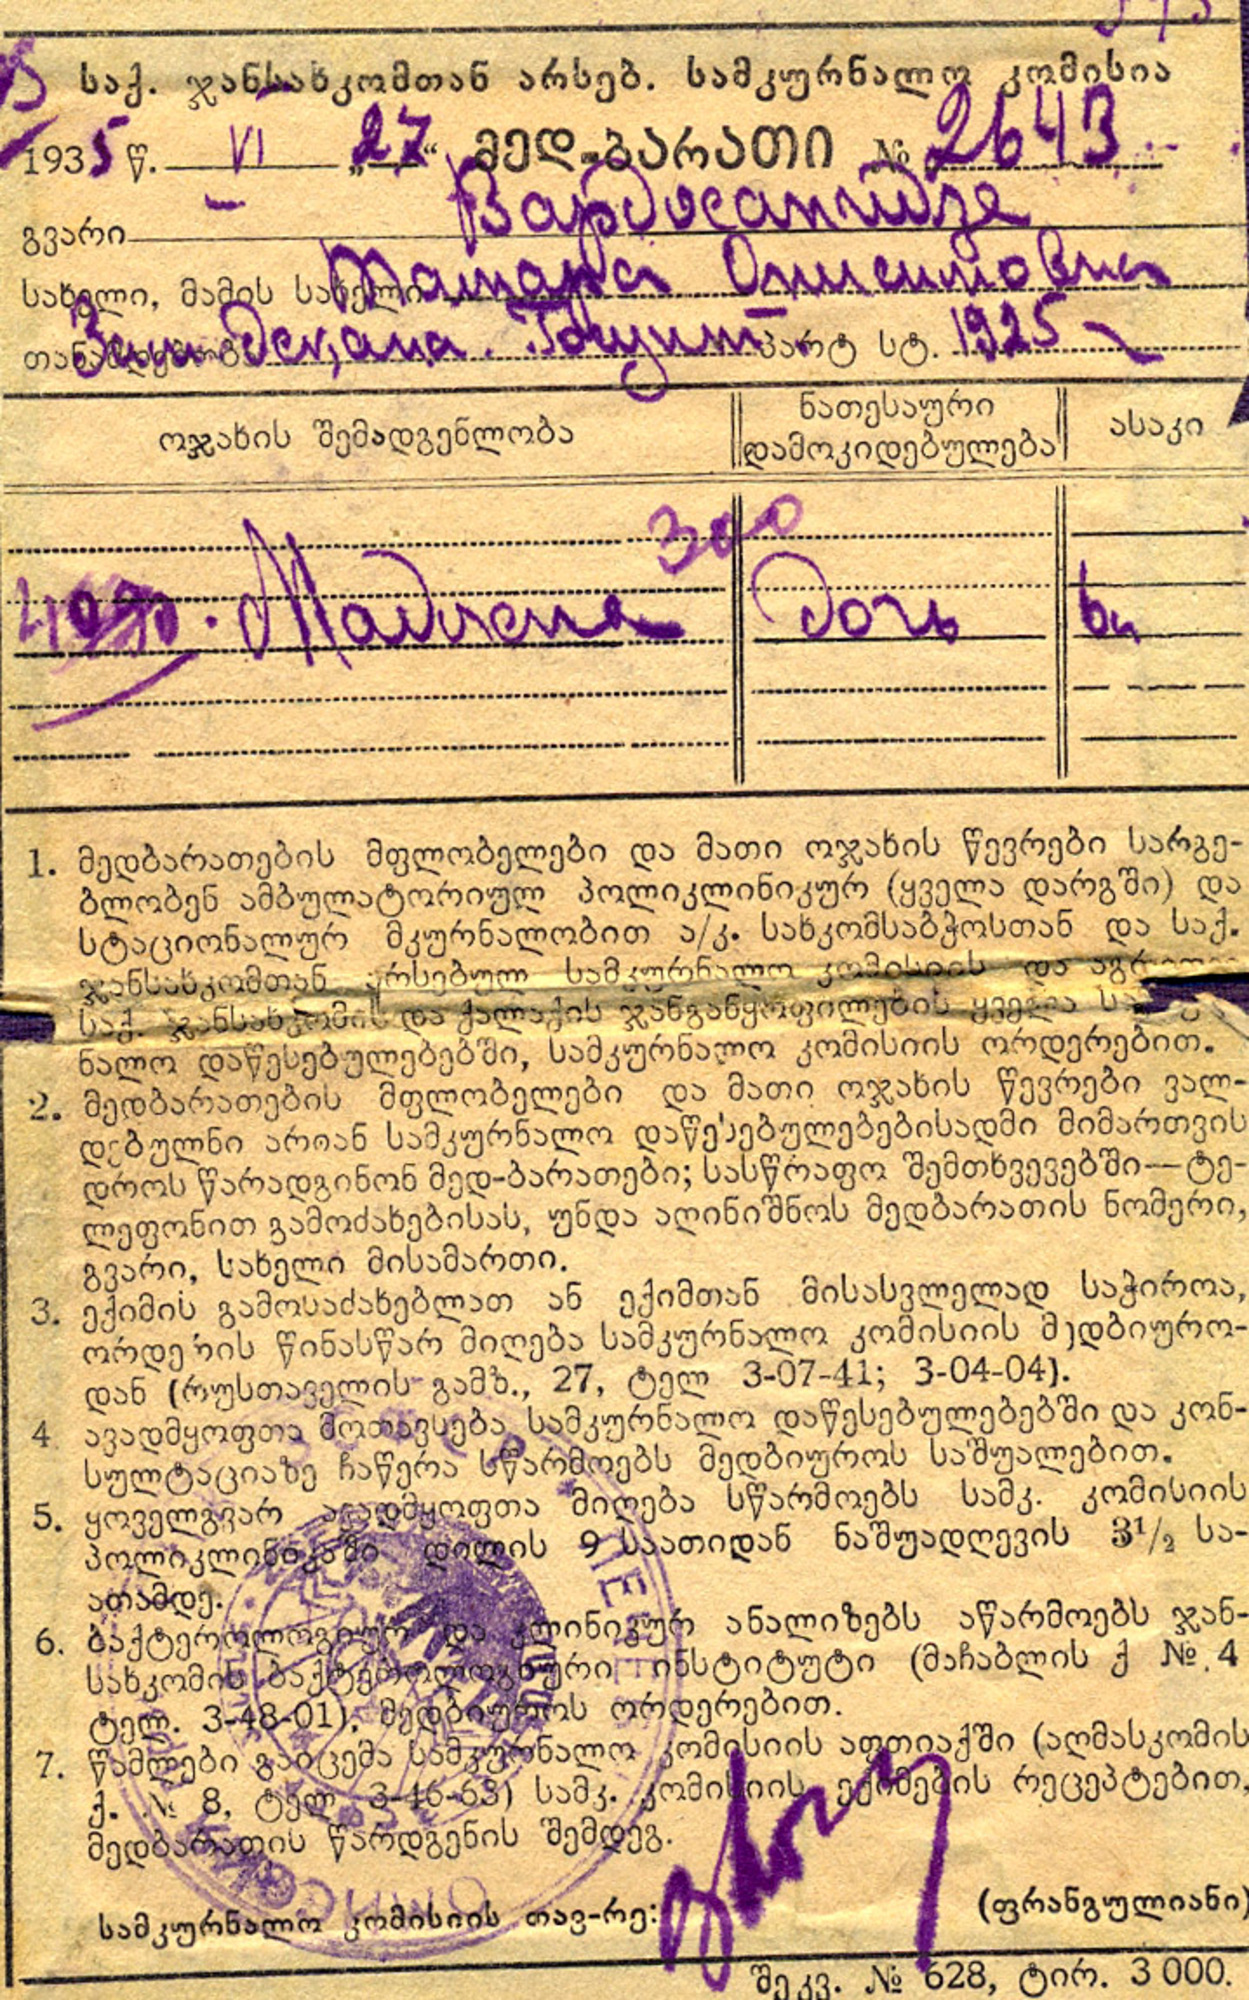 საქ. ჯანსახკომთან არსებ. სამკურნალო კომისია
1935 წ. VI „27“ მედ-ბარათი № 2643
გვარი Вардосанидзе
სახელი, მამის სახელი Тамара
თანამდებობა Зам. Декана. პარტ სტ. 1925
ოჯახის შემადგენლობა ნათესაური დამოკიდებულება ასაკი
300
Мадлена Дочь 6
1. მედბარათების მფლობელები და მათი ოჯახის წევრები სარგე-
ბლობენ ამბულატორიულ პოლიკლინიკურ (ყველა დარგში) და
სტაციონალურ მკურნალობით ა/კ. სახკომსაბჭოსთან და საქ.
ჯანსახკომთან არსებულ სამკურნალო კომისიის და
საქ. ჯანსახკომის და ქალაქის ჯანგანყოფილების ყველა
ნალო დაწესებულებებში, სამკურნალო კომისიის ორდერებით.
2. მედბარათების მფლობელები და მათი ოჯახის წევრები ვალ-
დებულნი არიან სამკურნალო დაწესებულებებისადმი მიმართვის
დროს წარადგინონ მედ-ბარათები; სასწრაფო შემთხვევებში—ტე-
ლეფონით გამოძახებისას, უნდა აღინიშნოს მედბარათის ნომერი,
გვარი, სახელი მისამართი.
3. ექიმის გამოსაძახებლათ ან ექიმთან მისასვლელად საჭიროა,
ორდერის წინასწარ მიღება სამკურნალო კომისიის მედბიურო-
დან (რუსთაველის გამზ., 27, ტელ 3-07-41; 3-04-04).
4 ავადმყოფთა მოთავსება სამკურნალო დაწესებულებებში და კონ-
სულტაციაზე ჩაწერა სწარმოებს მედბიუროს საშუალებით.
5. ყოველგვარ ავადმყოფთა მიღება სწარმოებს სამკ. კომისიის
პოლიკლინიკაში დილის 9 საათიდან ნაშუადღევის 3½ სა-
ათამდე.
6. ბაქტეროლოგიურ და კლინიკურ ანალიზებს აწარმოებს ჯან-
სახკომის ბაქტეროლოგიური ინსტიტუტი (მაჩაბლის ქ № 4
ტელ. 3-48-01), მედბიუროს ორდერებით.
7. წამლები გაიცემა სამკურნალო კომისიის აფთიაქში (აღმასკომის
ქ. № 8, ტელ 3-46-63) სამკ. კომისიის ექიმების რეცეპტებით,
მედბარათის წარდგენის შემდეგ.
სამკურნალო კომისიის თავ-რე: (ფრანგულიანი)
შეკვ. № 628, ტირ. 3 000.